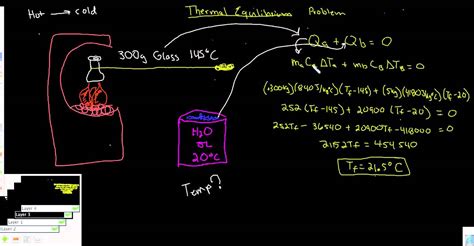 Hot → cold
Thermal Equilibrium Problem
300g Glass 145°C
Qa + Qb = 0
maCaΔTa + mbCbΔTb = 0
(.300kg)(840J/kg°C)(Tf-145) + (5kg)(4180J/kg°C)(Tf-20)
252(Tf-145) + 20900(Tf-20) = 0
252Tf - 36540 + 20900Tf - 418000 = 0
21152Tf = 454540
Tf = 21.5°C
H2O
20°C
Temp?